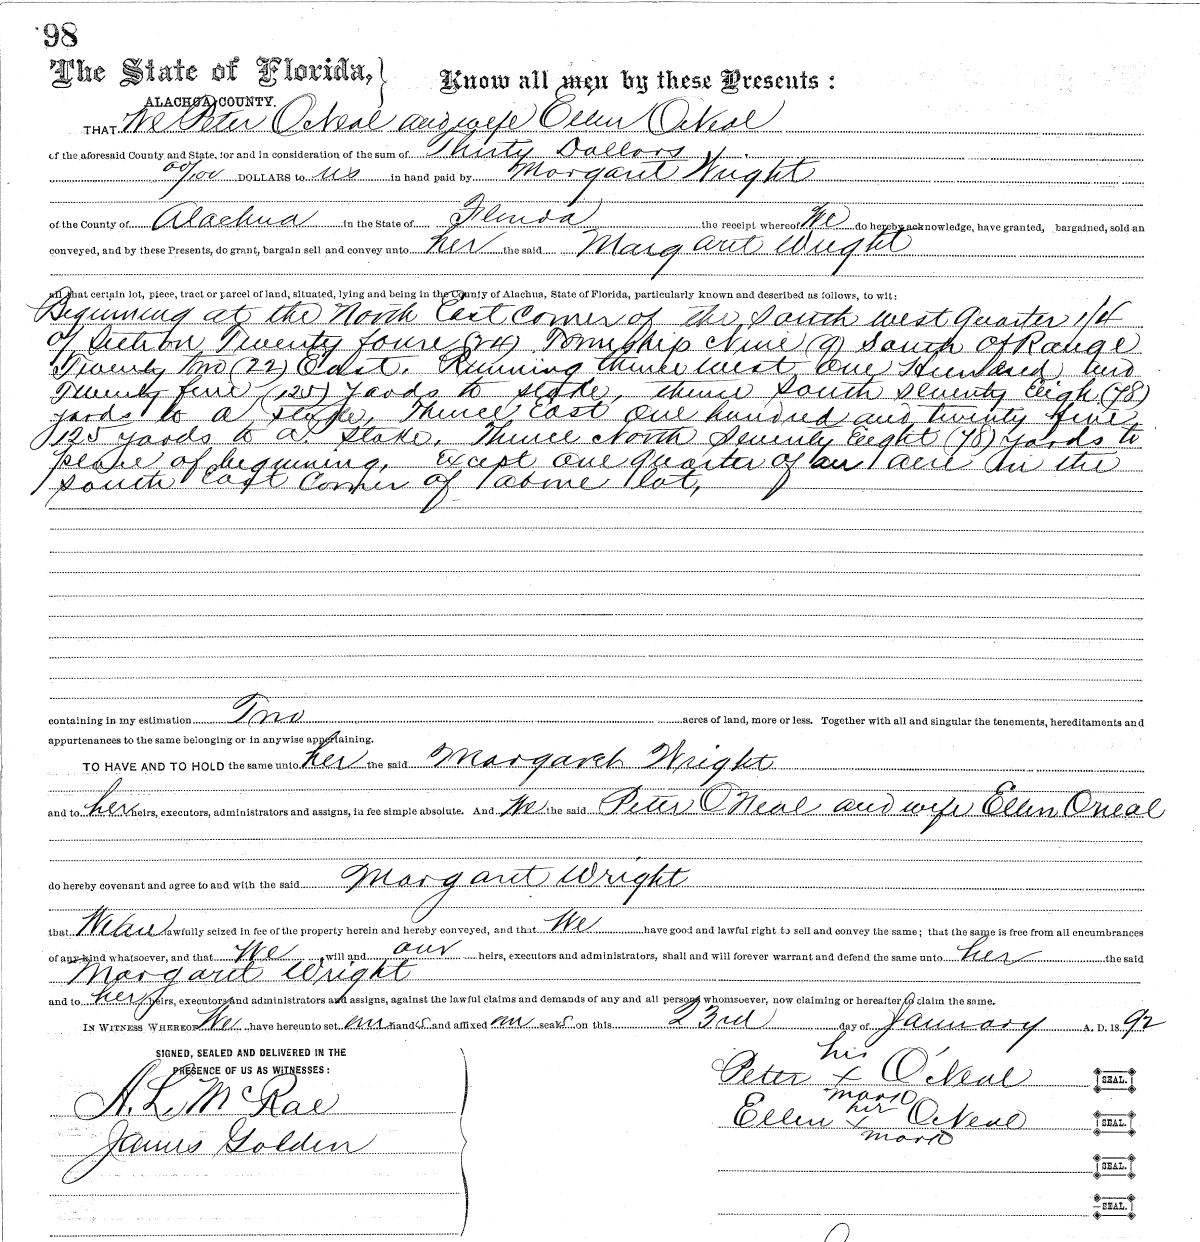 98
The State of Florida,} Know all men by these Presents:
ALACHUA COUNTY.
THAT We Peter O'Neal and wife Ellen O'Neal
of the aforesaid County and State, for and in consideration of the sum of Thirty Dollars
00/100 DOLLARS to us in hand paid by Margaret Wright
of the County of Alachua in the State of Florida the receipt whereof We do hereby acknowledge, have granted, bargained, sold an
conveyed, and by these Presents, do grant, bargain sell and convey unto her the said Margaret Wright
all that certain lot, piece, tract or parcel of land, situated, lying and being in the County of Alachua, State of Florida, particularly known and described as follows, to wit:
Beginning at the North East Corner of the South west quarter 1/4
of Section Twenty foure (24) Township Nine (9) South of Range
Twenty Two (22) East. Running thence west One Hundred and
Twenty five (125) yards to stake, thence South seventy Eigh (78)
yards to a stake, Thence East One hundred and twenty five
125 yards to a stake. Thence North Seventy Eight (78) yards to
place of beginning. Except one quarter of an acre in the
South East corner of above lot,
containing in my estimation Two acres of land, more or less. Together with all and singular the tenements, hereditaments and
appurtenances to the same belonging or in anywise appertaining.
TO HAVE AND TO HOLD the same unto her the said Margaret Wright
and to her heirs, executors, administrators and assigns, in fee simple absolute. And We the said Peter O'Neal and wife Ellen O'neal
do hereby covenant and agree to and with the said Margaret Wright
that We are lawfully seized in fee of the property herein and hereby conveyed, and that We have good and lawful right to sell and convey the same; that the same is free from all encumbrances
of any kind whatsoever, and that We will and our heirs, executors and administrators, shall and will forever warrant and defend the same unto her the said
Margaret Wright
and to her heirs, executors and administrators and assigns, against the lawful claims and demands of any and all persons whomsoever, now claiming or hereafter to claim the same.
IN WITNESS WHEREOF We have hereunto set our hands and affixed our seals on this 23rd day of January A. D. 1892
SIGNED, SEALED AND DELIVERED IN THE
PRESENCE OF US AS WITNESSES:
his
Peter x O'Neal SEAL.
mark
A. L. McRae
her
Ellen x O'Neal SEAL.
mark
James Golden
SEAL.
SEAL.